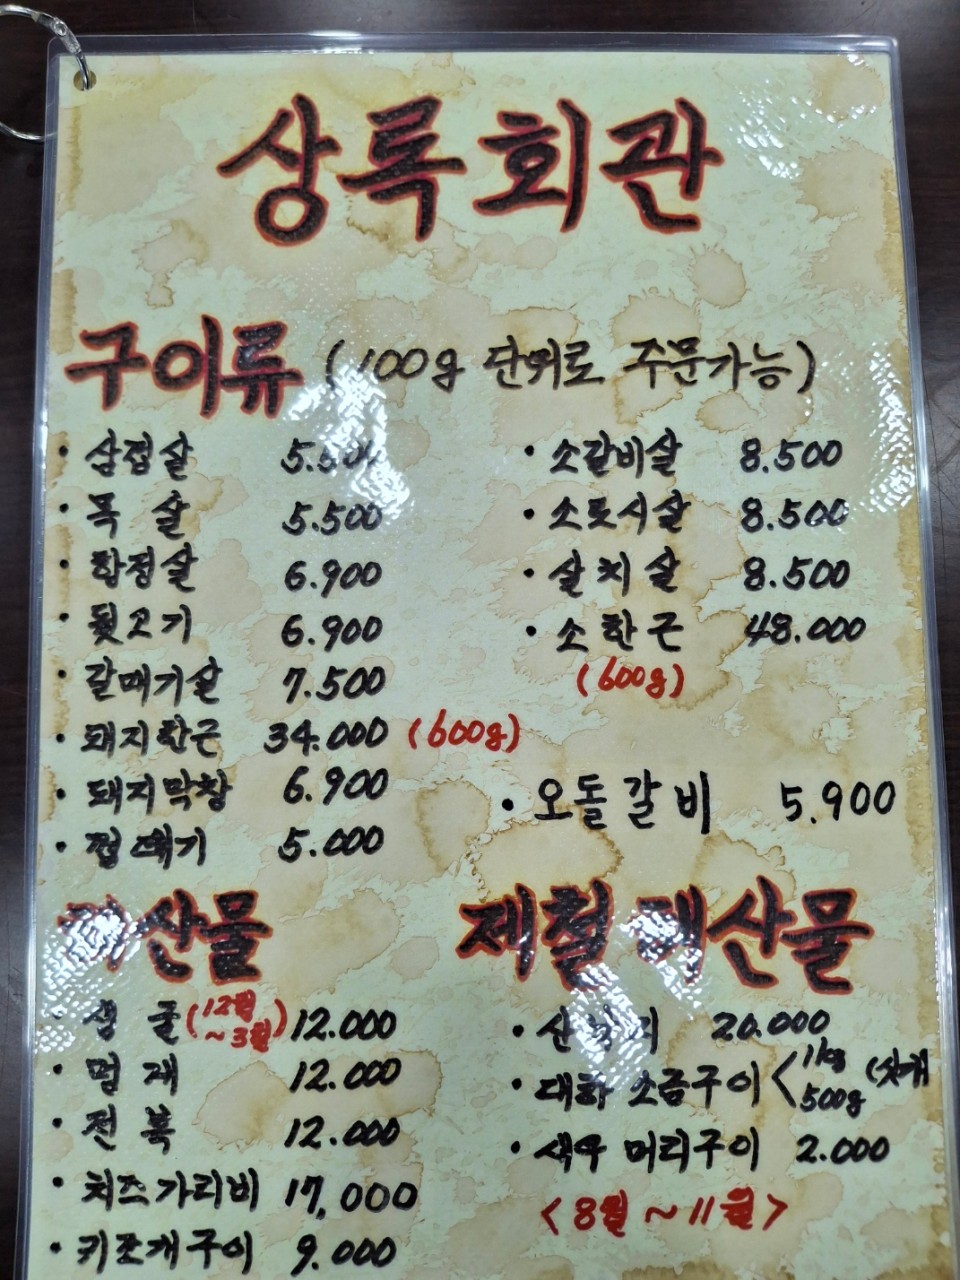 상록회관
구이류 (100g 단위로 주문가능)
· 삼겹살 5.500
· 목 살 5.500
· 항정살 6.900
· 뒷고기 6.900
· 갈매기살 7.500
· 돼지한근 34.000 (600g)
· 돼지막창 6.900
· 껍데기 5.000
· 소갈비살 8.500
· 소토시살 8.500
· 살치살 8.500
· 소한근 48.000
(600g)
· 오돌갈비 5,900
해산물
· 생 굴 (12월 ~3월) 12.000
· 멍 게 12.000
· 전 복 12.000
· 치즈가리비 17,000
· 키조개구이 9.000
제철 해산물
· 산낙지 20.000
· 대하 소금구이 < 1kg 500g
· 새우 머리구이 2.000
<8월 ~ 11월>